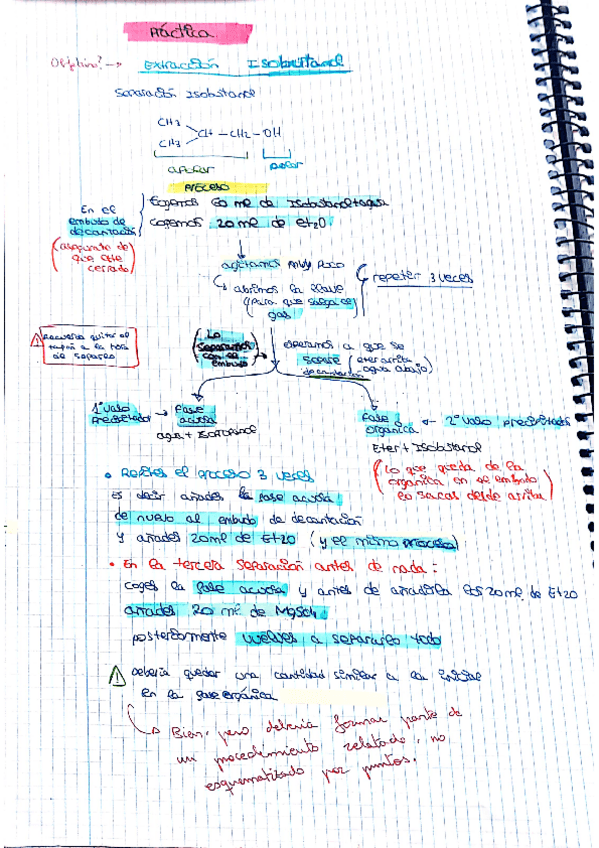 Práctica
Objetivo? → Extracción Isobutanol
Separación Isobutanol
CH3
CH3
CH – CH2 – OH
apolar
polar
PROCESO
En el embudo de decantación
(asegurate de que este cerrado)
Cogemos 60 ml de Isobutanol+agua
Cogemos 20 ml de Et2O
agitamos muy poco
abrimos la llave
(para que salga el gas)
repetir 3 veces
Recuerda quitar el tapón a la hora de separar
Lo separamos con el embudo
esperamos a que se
separe (eter arriba
decantación - agua abajo)
1º vaso precipitados → Fase acuosa
agua + Isobutanol
Fase orgánica ← 2º vaso precipitados
Eter + Isobutanol
(Lo que queda de la orgánica en el embudo lo sacas desde arriba)
• Repites el proceso 3 veces
es decir añades la fase acuosa
de nuevo al embudo de decantación
y añades 20 ml de Et2O (y el mismo proceso)
• En la tercera separación antes de nada:
coges la fase acuosa y antes de añadirla los 20 ml de Et2O
añades 20 ml de MgSO4
posteriormente vuelves a separarlo todo
⚠ Debería quedar una cantidad similar a la inicial
en la fase orgánica
→ Bien, pero debería formar parte de
un procedimiento relatado, no
esquematizado por puntos.